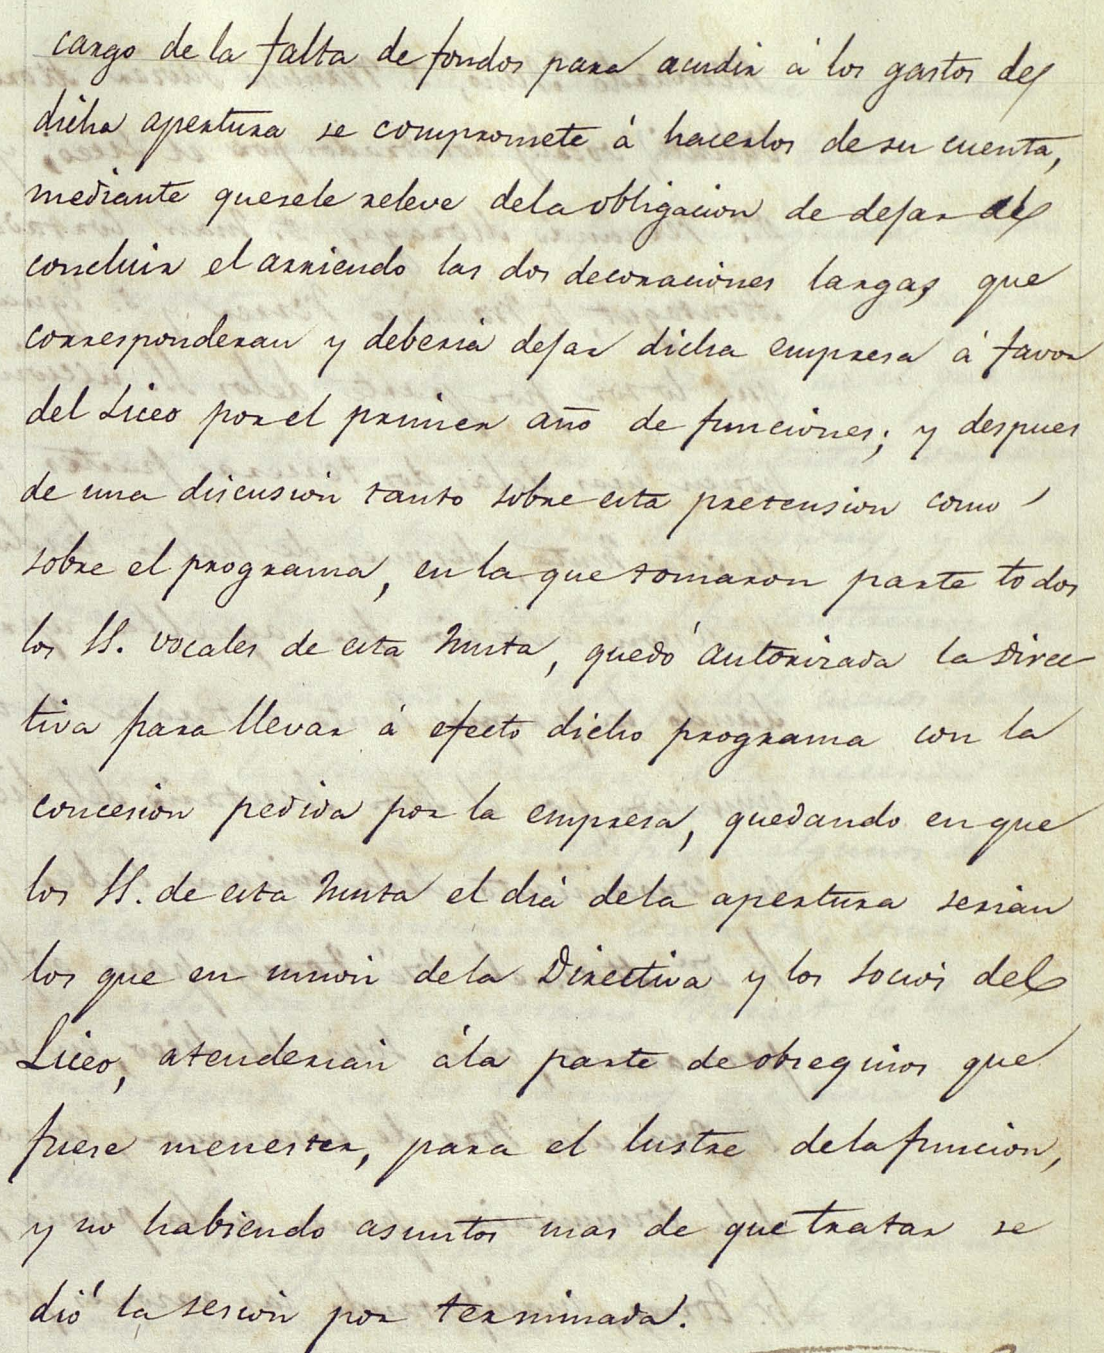 cargo de la falta de fondos para acudir á los gastos de
dicha apertura se compromete á hacerlos de su cuenta,
mediante quesele releve dela obligacion de dejar al
concluir el arriendo las dos decoraciónes largas que
corresponderan y deberia dejar dicha empresa á favor
del Liceo por el primer año de funciones; y despues
de una discusion tanto sobre esta pretension como
sobre el programa, en la que tomaron parte todos
los SS. vocales de esta Junta, quedó autorizada la Direc
tiva para llevar á efecto dicho programa con la
concesion pedida por la empresa, quedando en que
los SS. de esta Junta el diá dela apertura serian
los que en union dela Directiva y los socios del
Liceo, atenderian ála parte de obsequios que
fuese menester, para el lustre dela funcion,
y no habiendo asuntos mas de que tratar se
dió la sesion por terminada.